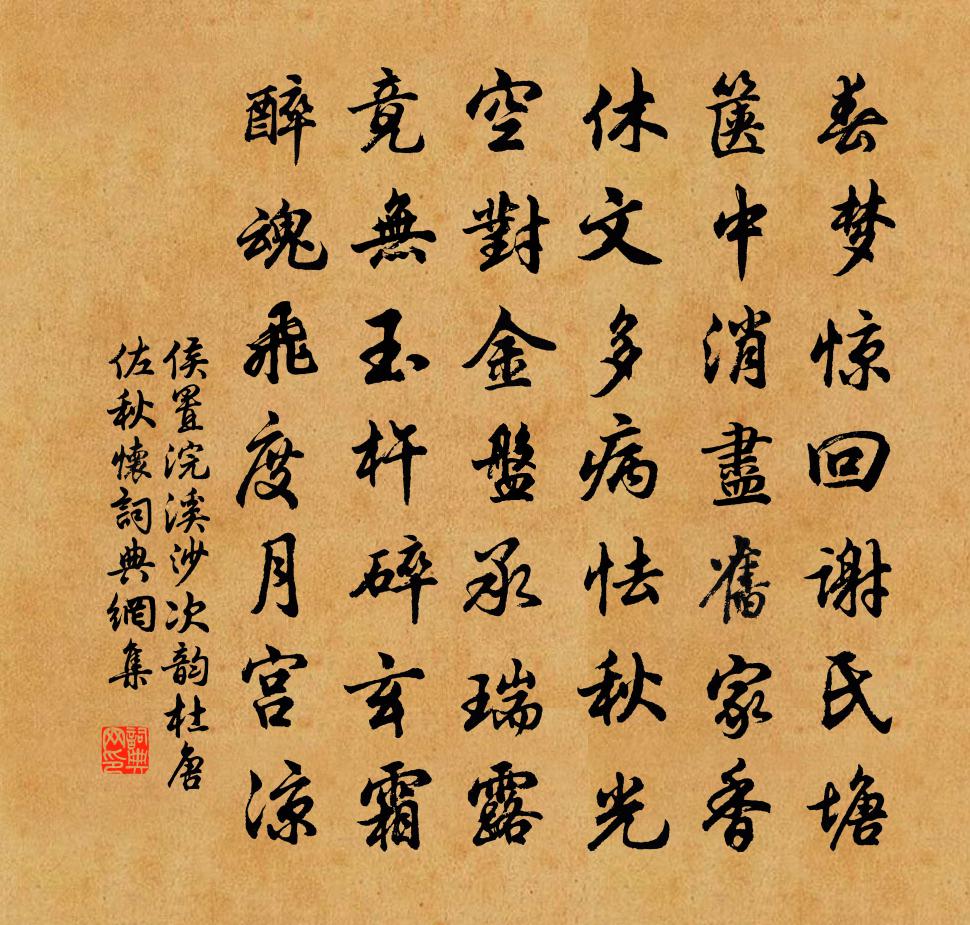 春梦惊回谢氏塘
箧中消盡舊家香
休文多病怯秋光
空對金盤承瑞露
竟無玉杵碎玄霜
醉魂飛度月宫凉
侯置浣溪沙次韵杜唐
佐秋懷詞典網集
詞典
网印